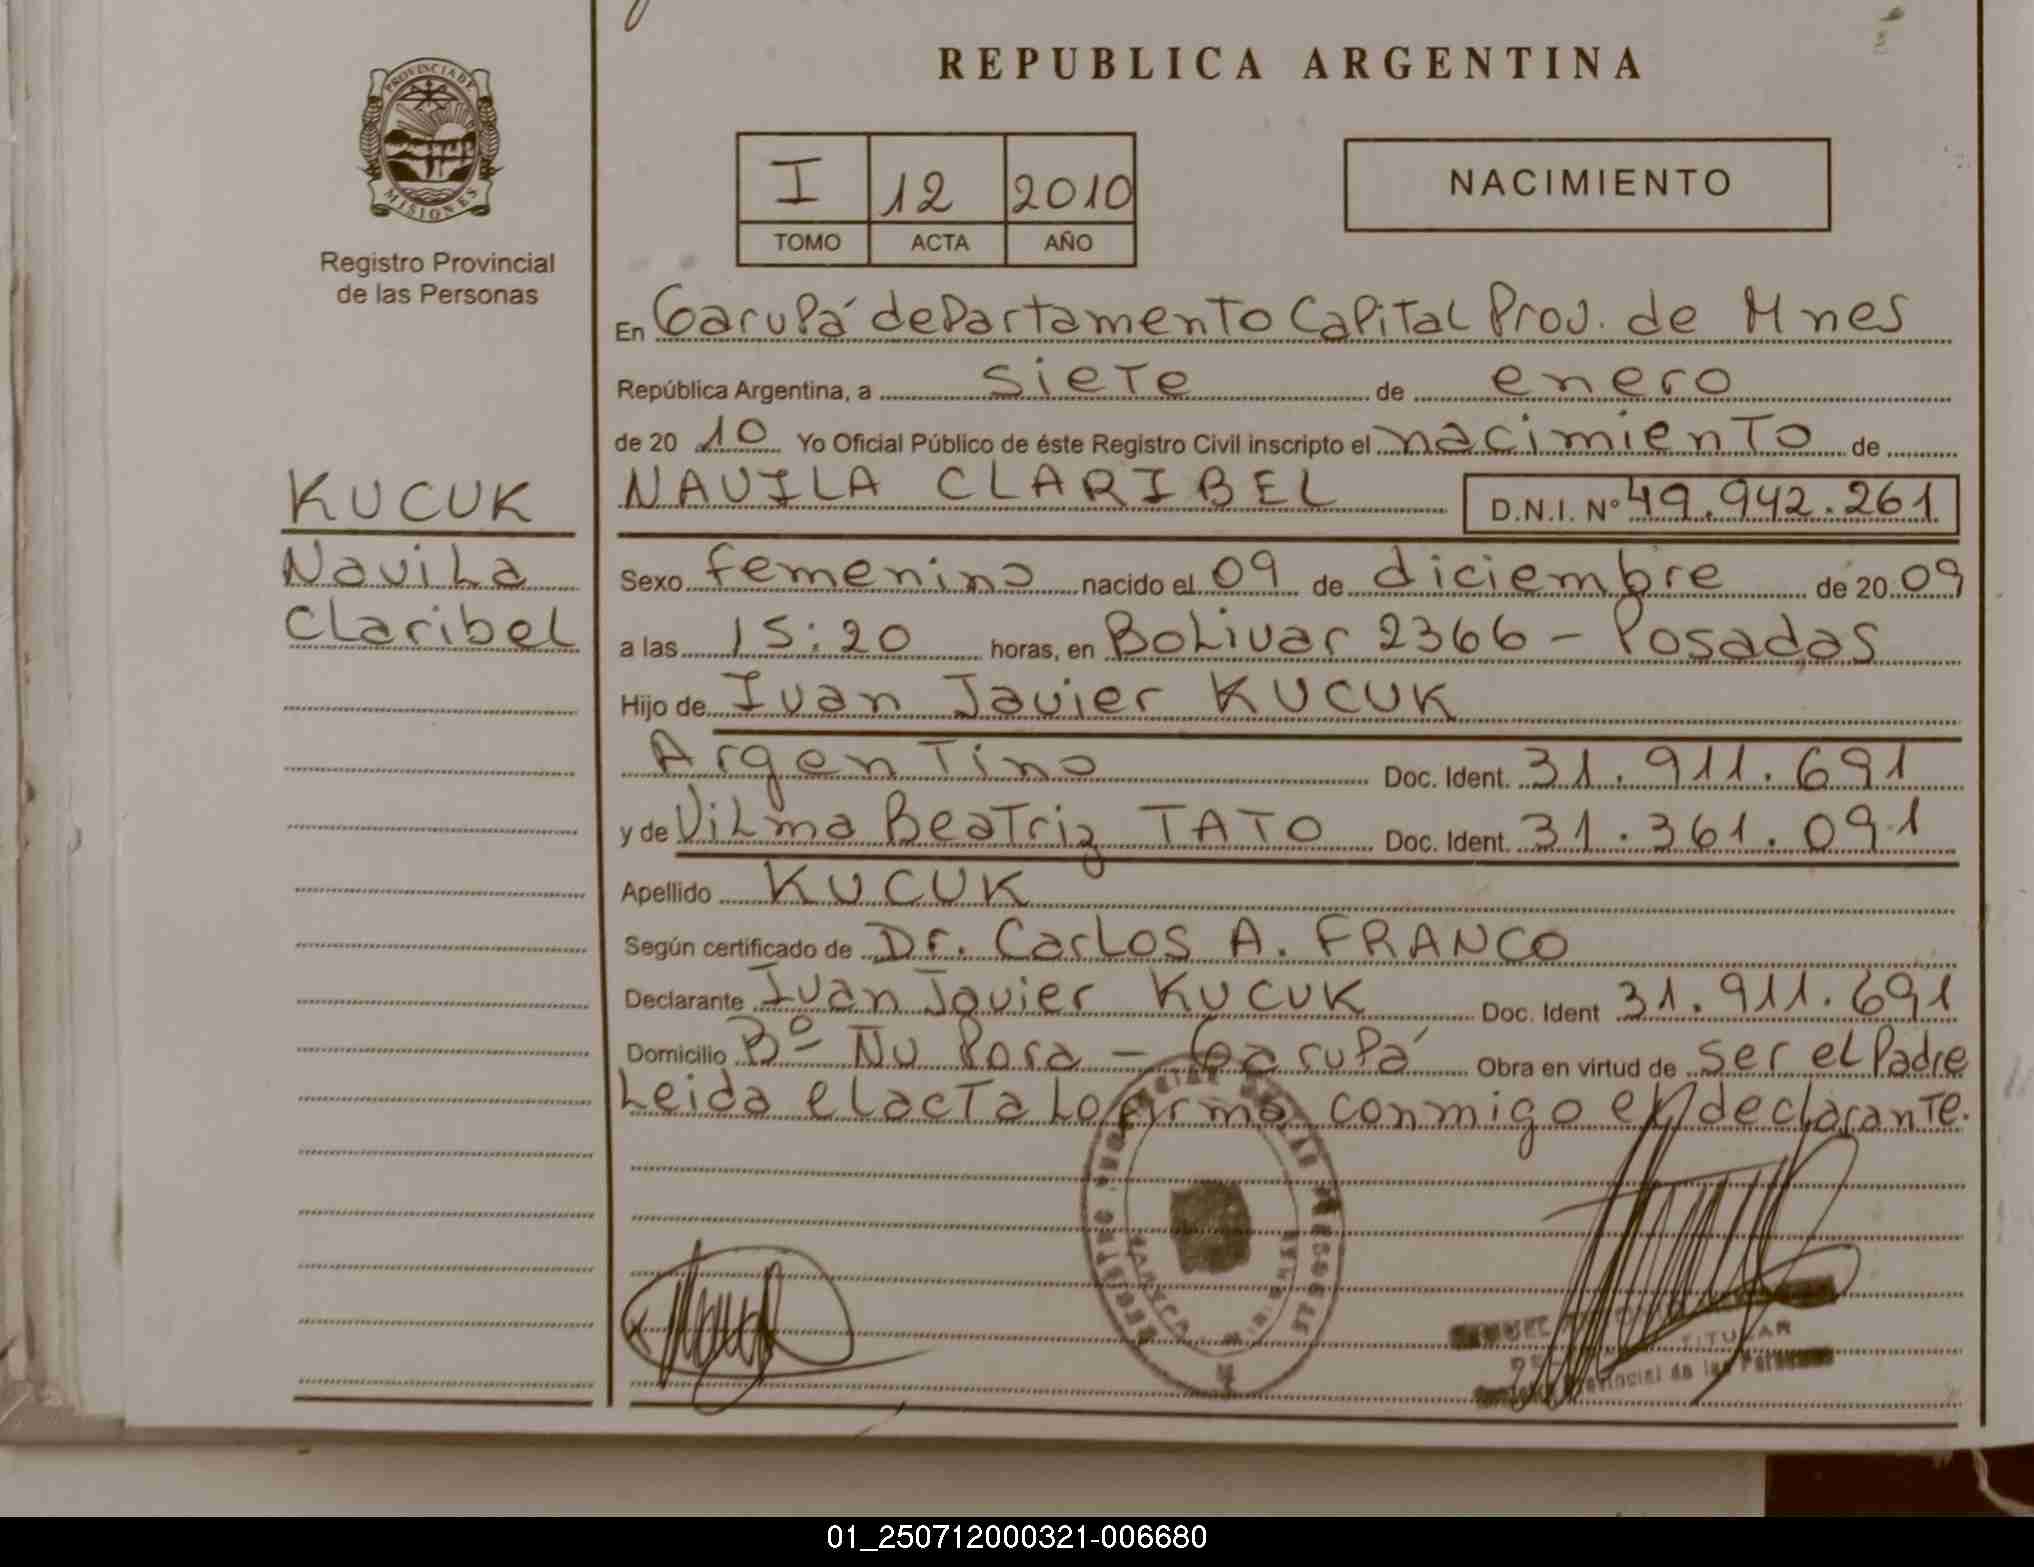 REPUBLICA ARGENTINA
PROVINCIA DE
MISIONES
Registro Provincial
de las Personas
I 12 2010
TOMO ACTA AÑO
NACIMIENTO
En Garupá departamento Capital Prov. de Mnes
República Argentina, a siete de enero
de 20 10 Yo Oficial Público de éste Registro Civil inscripto el nacimiento de
NAVILA CLARIBEL D.N.I. Nº 49.942.261
KUCUK
Navila
Claribel
Sexo femenino nacido el 09 de diciembre de 20 09
a las 15:20 horas, en Bolivar 2366 - Posadas
Hijo de Ivan Javier KUCUK
Argentino Doc. Ident. 31.911.691
y de Vilma Beatriz TATO Doc. Ident. 31.361.091
Apellido KUCUK
Según certificado de Dr. Carlos A. FRANCO
Declarante Ivan Javier KUCUK Doc. Ident 31.911.691
Domicilio Bº Nu Pora - Garupá Obra en virtud de ser el Padre
Leida el acta lo firma conmigo el declarante.
TITULAR
Provincial de las Personas
01_250712000321-006680